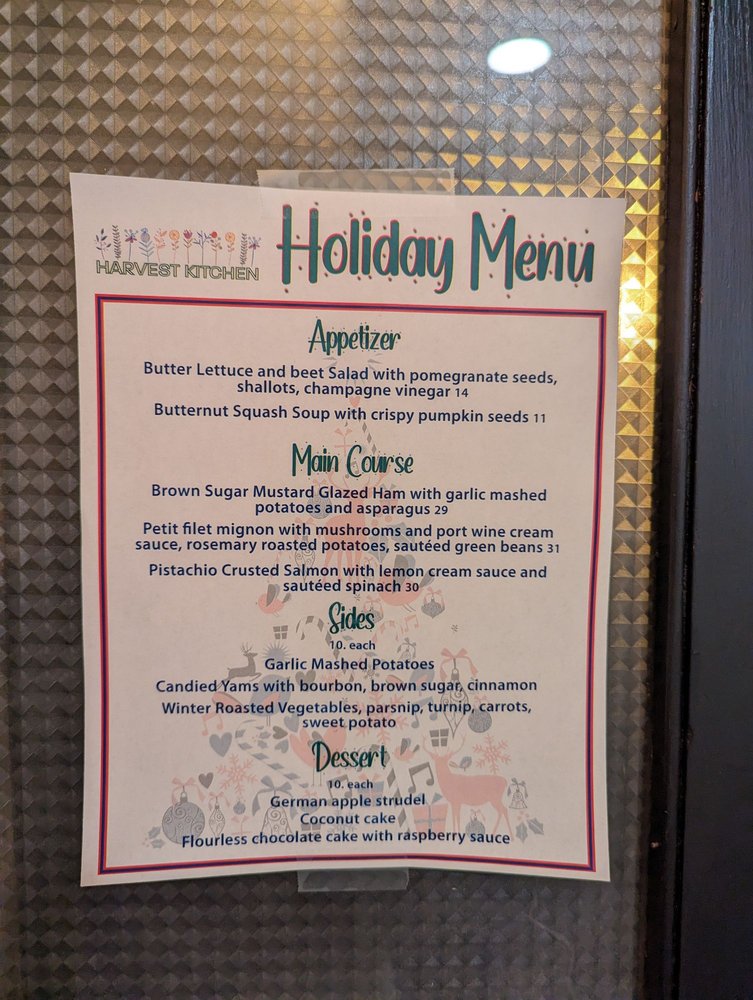 HARVEST KITCHEN
Holiday Menu
Appetizer
Butter Lettuce and beet Salad with pomegranate seeds,
shallots, champagne vinegar 14
Butternut Squash Soup with crispy pumpkin seeds 11
Main Course
Brown Sugar Mustard Glazed Ham with garlic mashed
potatoes and asparagus 29
Petit filet mignon with mushrooms and port wine cream
sauce, rosemary roasted potatoes, sautéed green beans 31
Pistachio Crusted Salmon with lemon cream sauce and
sautéed spinach 30
Sides
10. each
Garlic Mashed Potatoes
Candied Yams with bourbon, brown sugar, cinnamon
Winter Roasted Vegetables, parsnip, turnip, carrots,
sweet potato
Dessert
10. each
German apple strudel
Coconut cake
Flourless chocolate cake with raspberry sauce